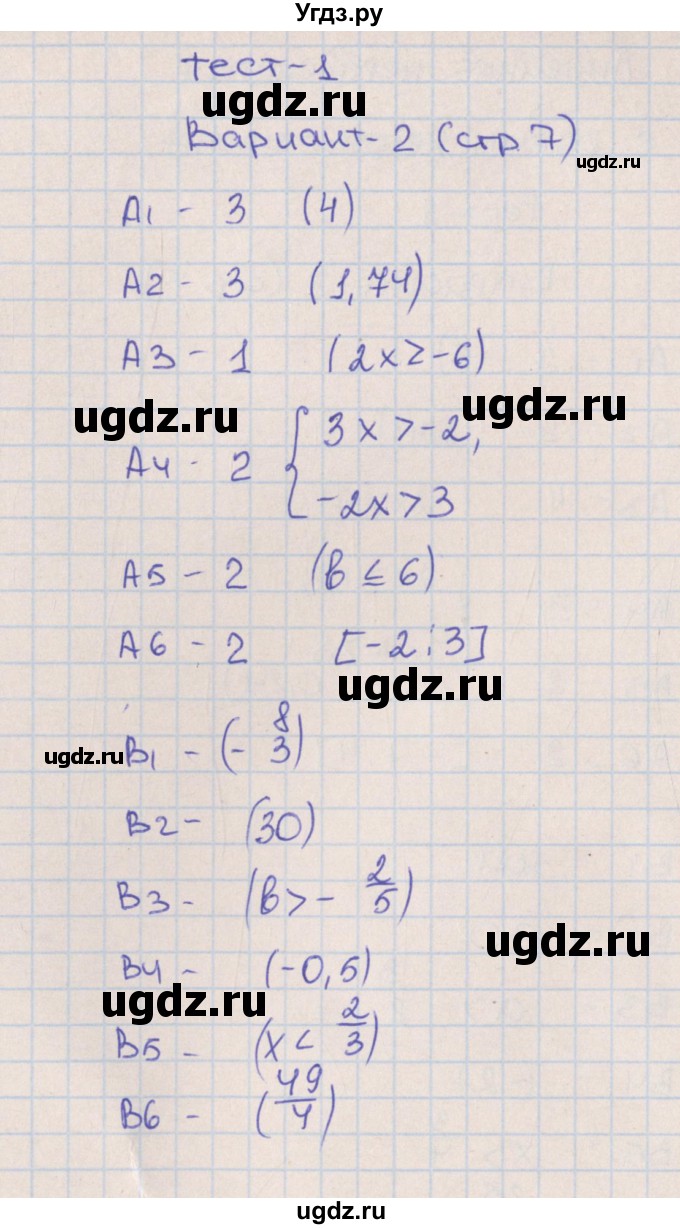 Угдз.ру
Тест-1
ugdz.ru
Вариант-2 (стр 7)
ugdz.ru
А1 - 3 (4)
А2 - 3 (1,74)
А3 - 1 (2x ≥ -6)
ugdz.ru
ugdz.ru
А4 - 2 { 3x > -2,
-2x > 3
А5 - 2 (b ≤ 6)
А6 - 2 [-2;3]
ugdz.ru
ugdz.ru
В1 - (- 8/3)
В2 - (30)
В3 - (b > - 2/5)
ugdz.ru
В4 - (-0,5)
ugdz.ru
В5 - (x < 2/3)
В6 - (49/4)
ugdz.ru